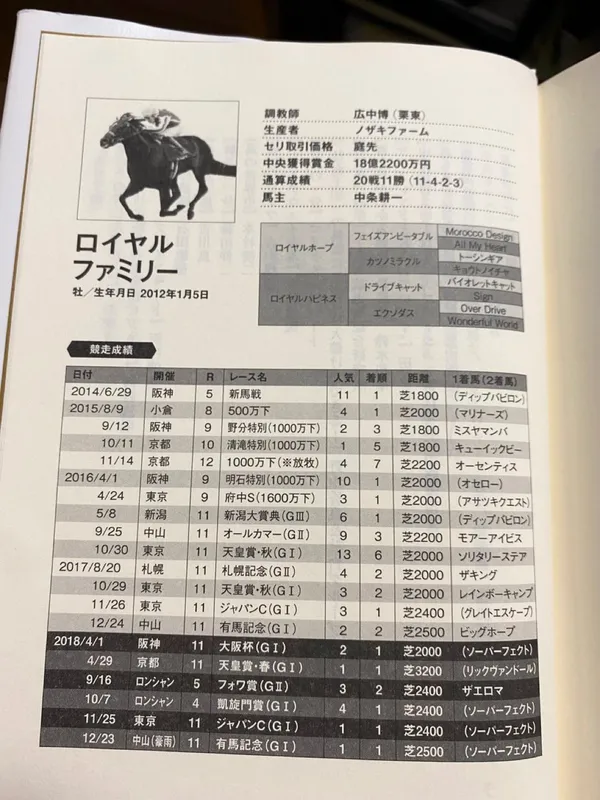 調教師 広中博（栗東）
生産者 ノザキファーム
セリ取引価格 庭先
中央獲得賞金 18億2200万円
通算成績 20戦11勝（11-4-2-3）
馬主 中条耕一
ロイヤル
ファミリー
牡／生年月日 2012年1月5日
ロイヤルホープ フェイズアンビータブル Morocco Design
All My Heart
カツノミラクル トーシンギア
キョウトノイチャ
ロイヤルハピネス ドライブキャット バイオレットキャット
Sign
エクソダス Over Drive
Wonderful World
競走成績
日付 開催 R レース名 人気 着順 距離 1着馬（2着馬）
2014/6/29 阪神 5 新馬戦 11 1 芝1800 （ディップパピロン）
2015/8/9 小倉 8 500万下 4 1 芝2000 （マリナーズ）
9/12 阪神 9 野分特別（1000万下） 2 3 芝1800 ミスヤマンバ
10/11 京都 10 清滝特別（1000万下） 1 5 芝1800 キューイックビー
11/14 京都 12 1000万下（※放牧） 4 7 芝2200 オーセンティス
2016/4/1 阪神 9 明石特別（1000万下） 10 1 芝2000 （オセロー）
4/24 東京 9 府中S（1600万下） 3 1 芝2000 （アサツキクエスト）
5/8 新潟 11 新潟大賞典（GⅢ） 6 1 芝2000 （ディップパピロン）
9/25 中山 11 オールカマー（GⅡ） 9 3 芝2200 モアーアイビス
10/30 東京 11 天皇賞・秋（GⅠ） 13 6 芝2000 ソリタリーステア
2017/8/20 札幌 11 札幌記念（GⅡ） 4 2 芝2000 ザキング
10/29 東京 11 天皇賞・秋（GⅠ） 3 2 芝2000 レインボーキャンプ
11/26 東京 11 ジャパンC（GⅠ） 3 1 芝2400 （グレイトエスケープ）
12/24 中山 11 有馬記念（GⅠ） 2 2 芝2500 ビッグホープ
2018/4/1 阪神 11 大阪杯（GⅠ） 2 1 芝2000 （ソーパーフェクト）
4/29 京都 11 天皇賞・春（GⅠ） 1 1 芝3200 （リックヴァンドール）
9/16 ロンシャン 5 フォワ賞（GⅡ） 3 2 芝2400 ザエロマ
10/7 ロンシャン 4 凱旋門賞（GⅠ） 4 1 芝2400 （ソーパーフェクト）
11/25 東京 11 ジャパンC（GⅠ） 1 1 芝2400 （ソーパーフェクト）
12/23 中山（豪雨） 11 有馬記念（GⅠ） 1 1 芝2500 （ソーパーフェクト）